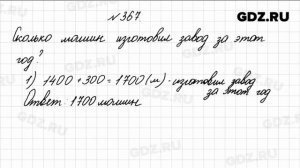 GDZ.RU
№ 367
Сколько машин изготовил завод за этот
год?
1) 1400 + 300 = 1700 (м) - изготовил завод
за этот год
Ответ: 1700 машин.
GDZ.RU